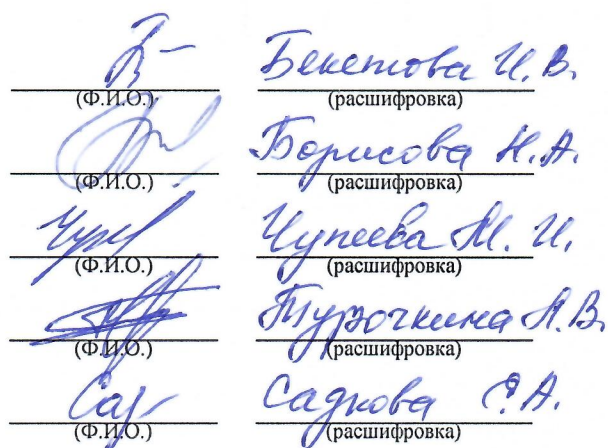 Бекетова И. В.
(Ф.И.О.) (расшифровка)
Борисова Н. А.
(Ф.И.О.) (расшифровка)
Чупеева М. И.
(Ф.И.О.) (расшифровка)
Н.В.
(Ф.И.О.) (расшифровка)
Садкова А.
(Ф.И.О.) (расшифровка)